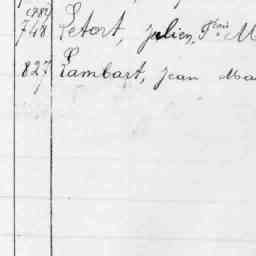 748 Letort, Julien, M
827 Lambart, Jean Ma